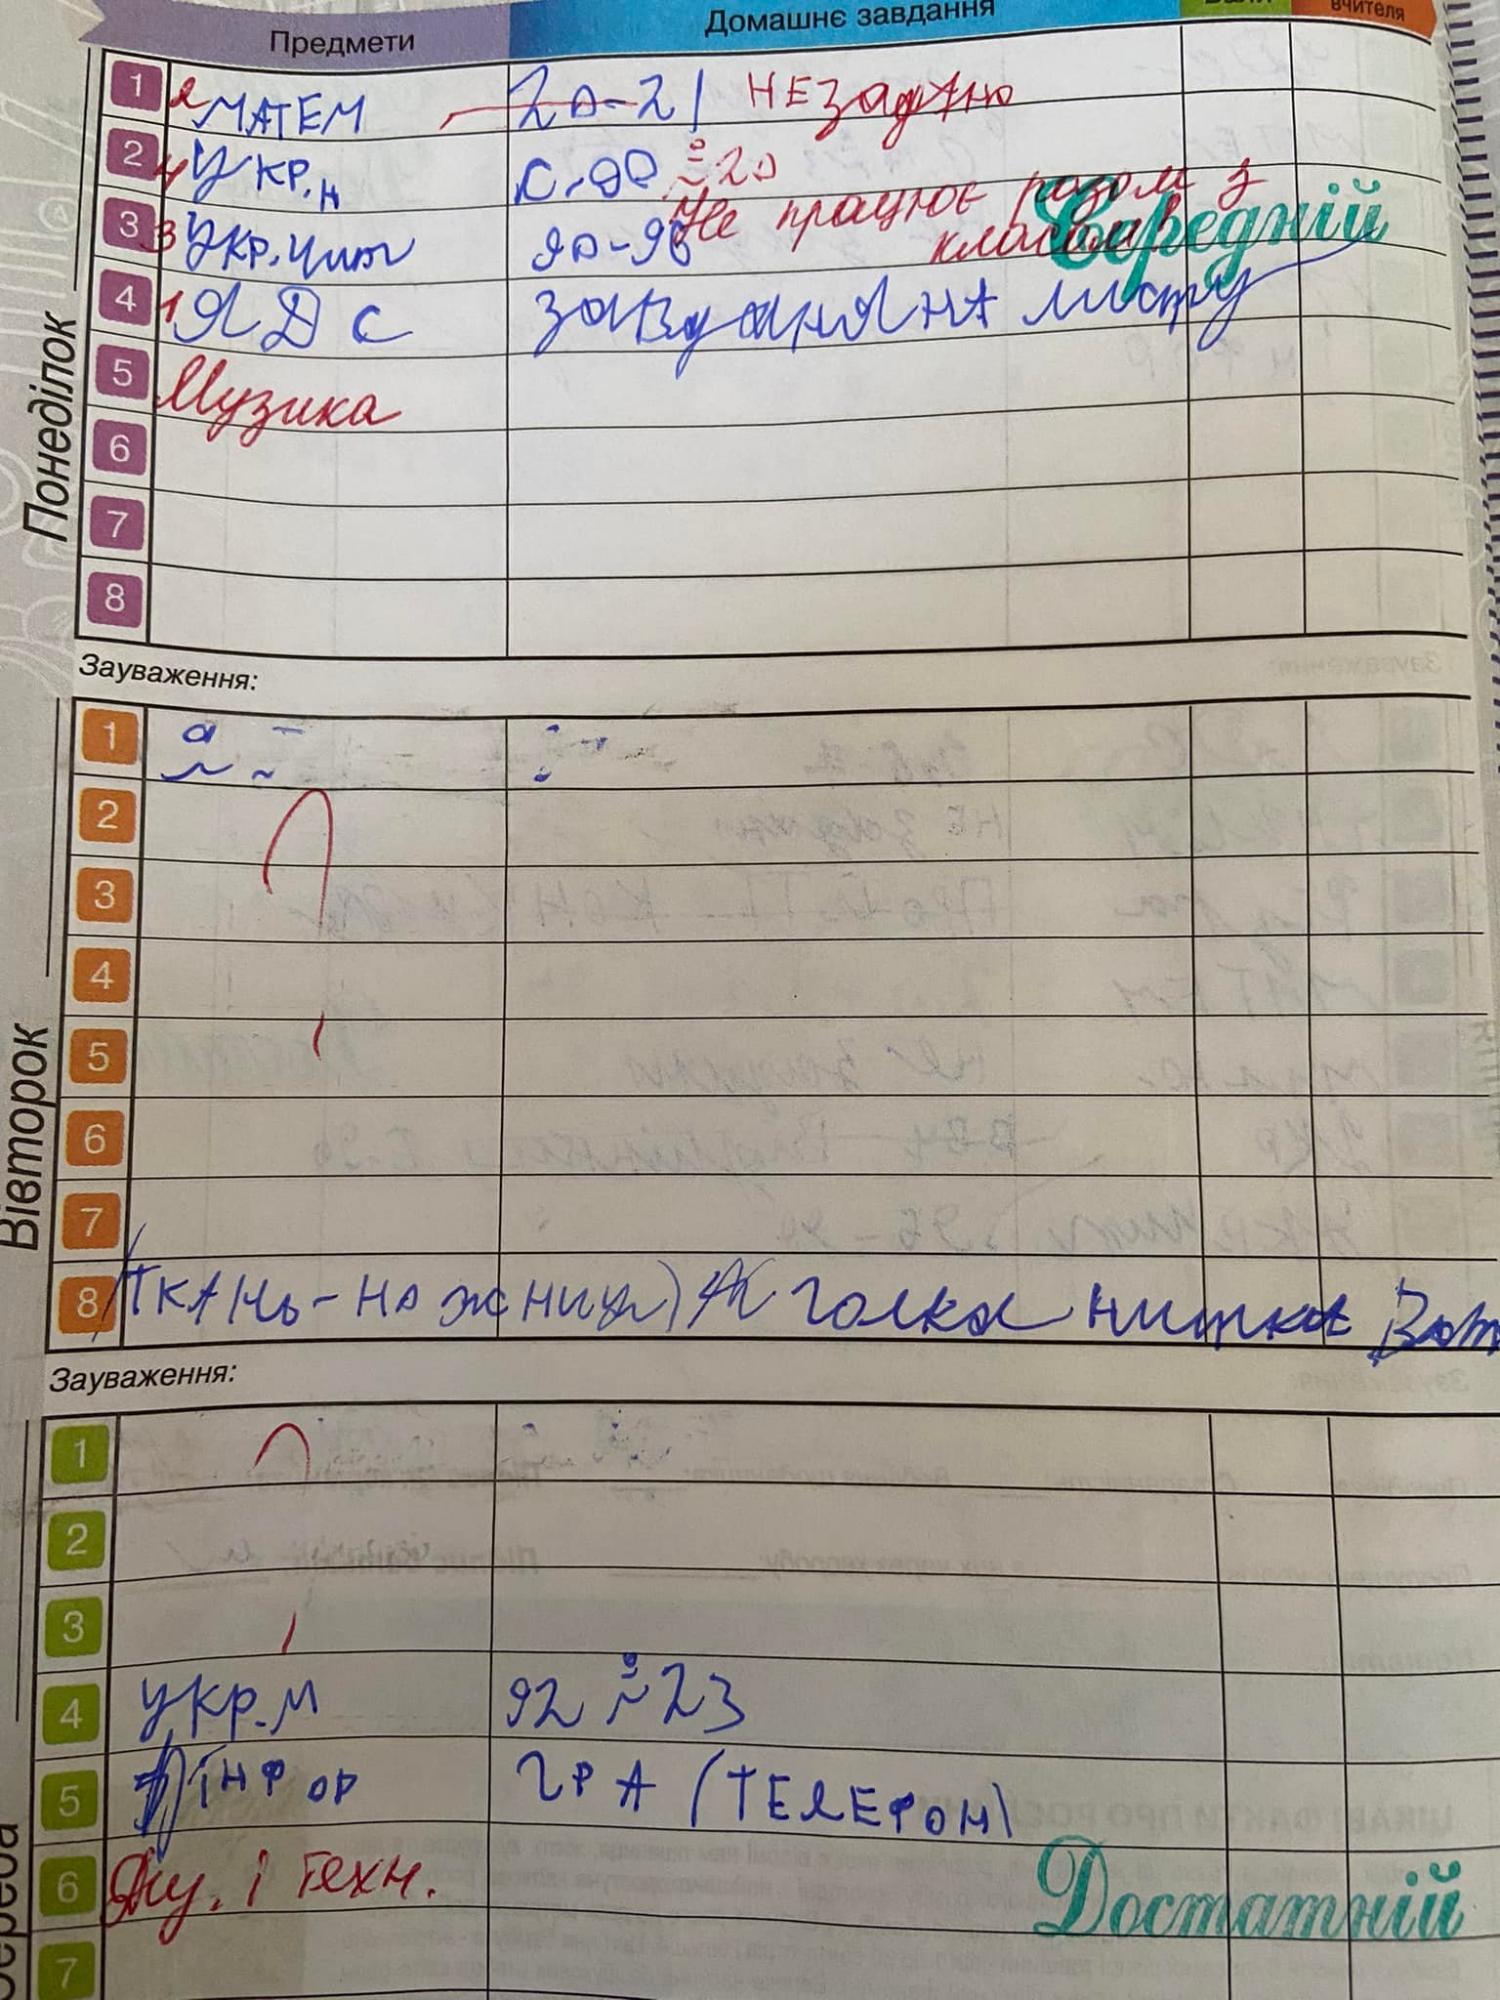 Предмети Домашнє завдання вчителя
Понеділок
1 2 МАТЕМ 20-21 НЕ задано
2 4 Укр.н с.90 20
Не працює разом з
класом
Середній
3 3 Укр.чит 90-96
4 1 ЯДС завданя на листу
5 Музика
6
7
8
Зауваження:
Вівторок
1
2
3
4
5
6
7
8 (ткань-ножниці) голка нитка Ват
Зауваження:
1
2
3
4 укр.м 92 23
5 інфор гра (телефон)
6 Диз. і техн.
Достатній
7